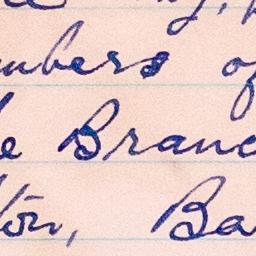 mbers of
e Branc
tón, Ba